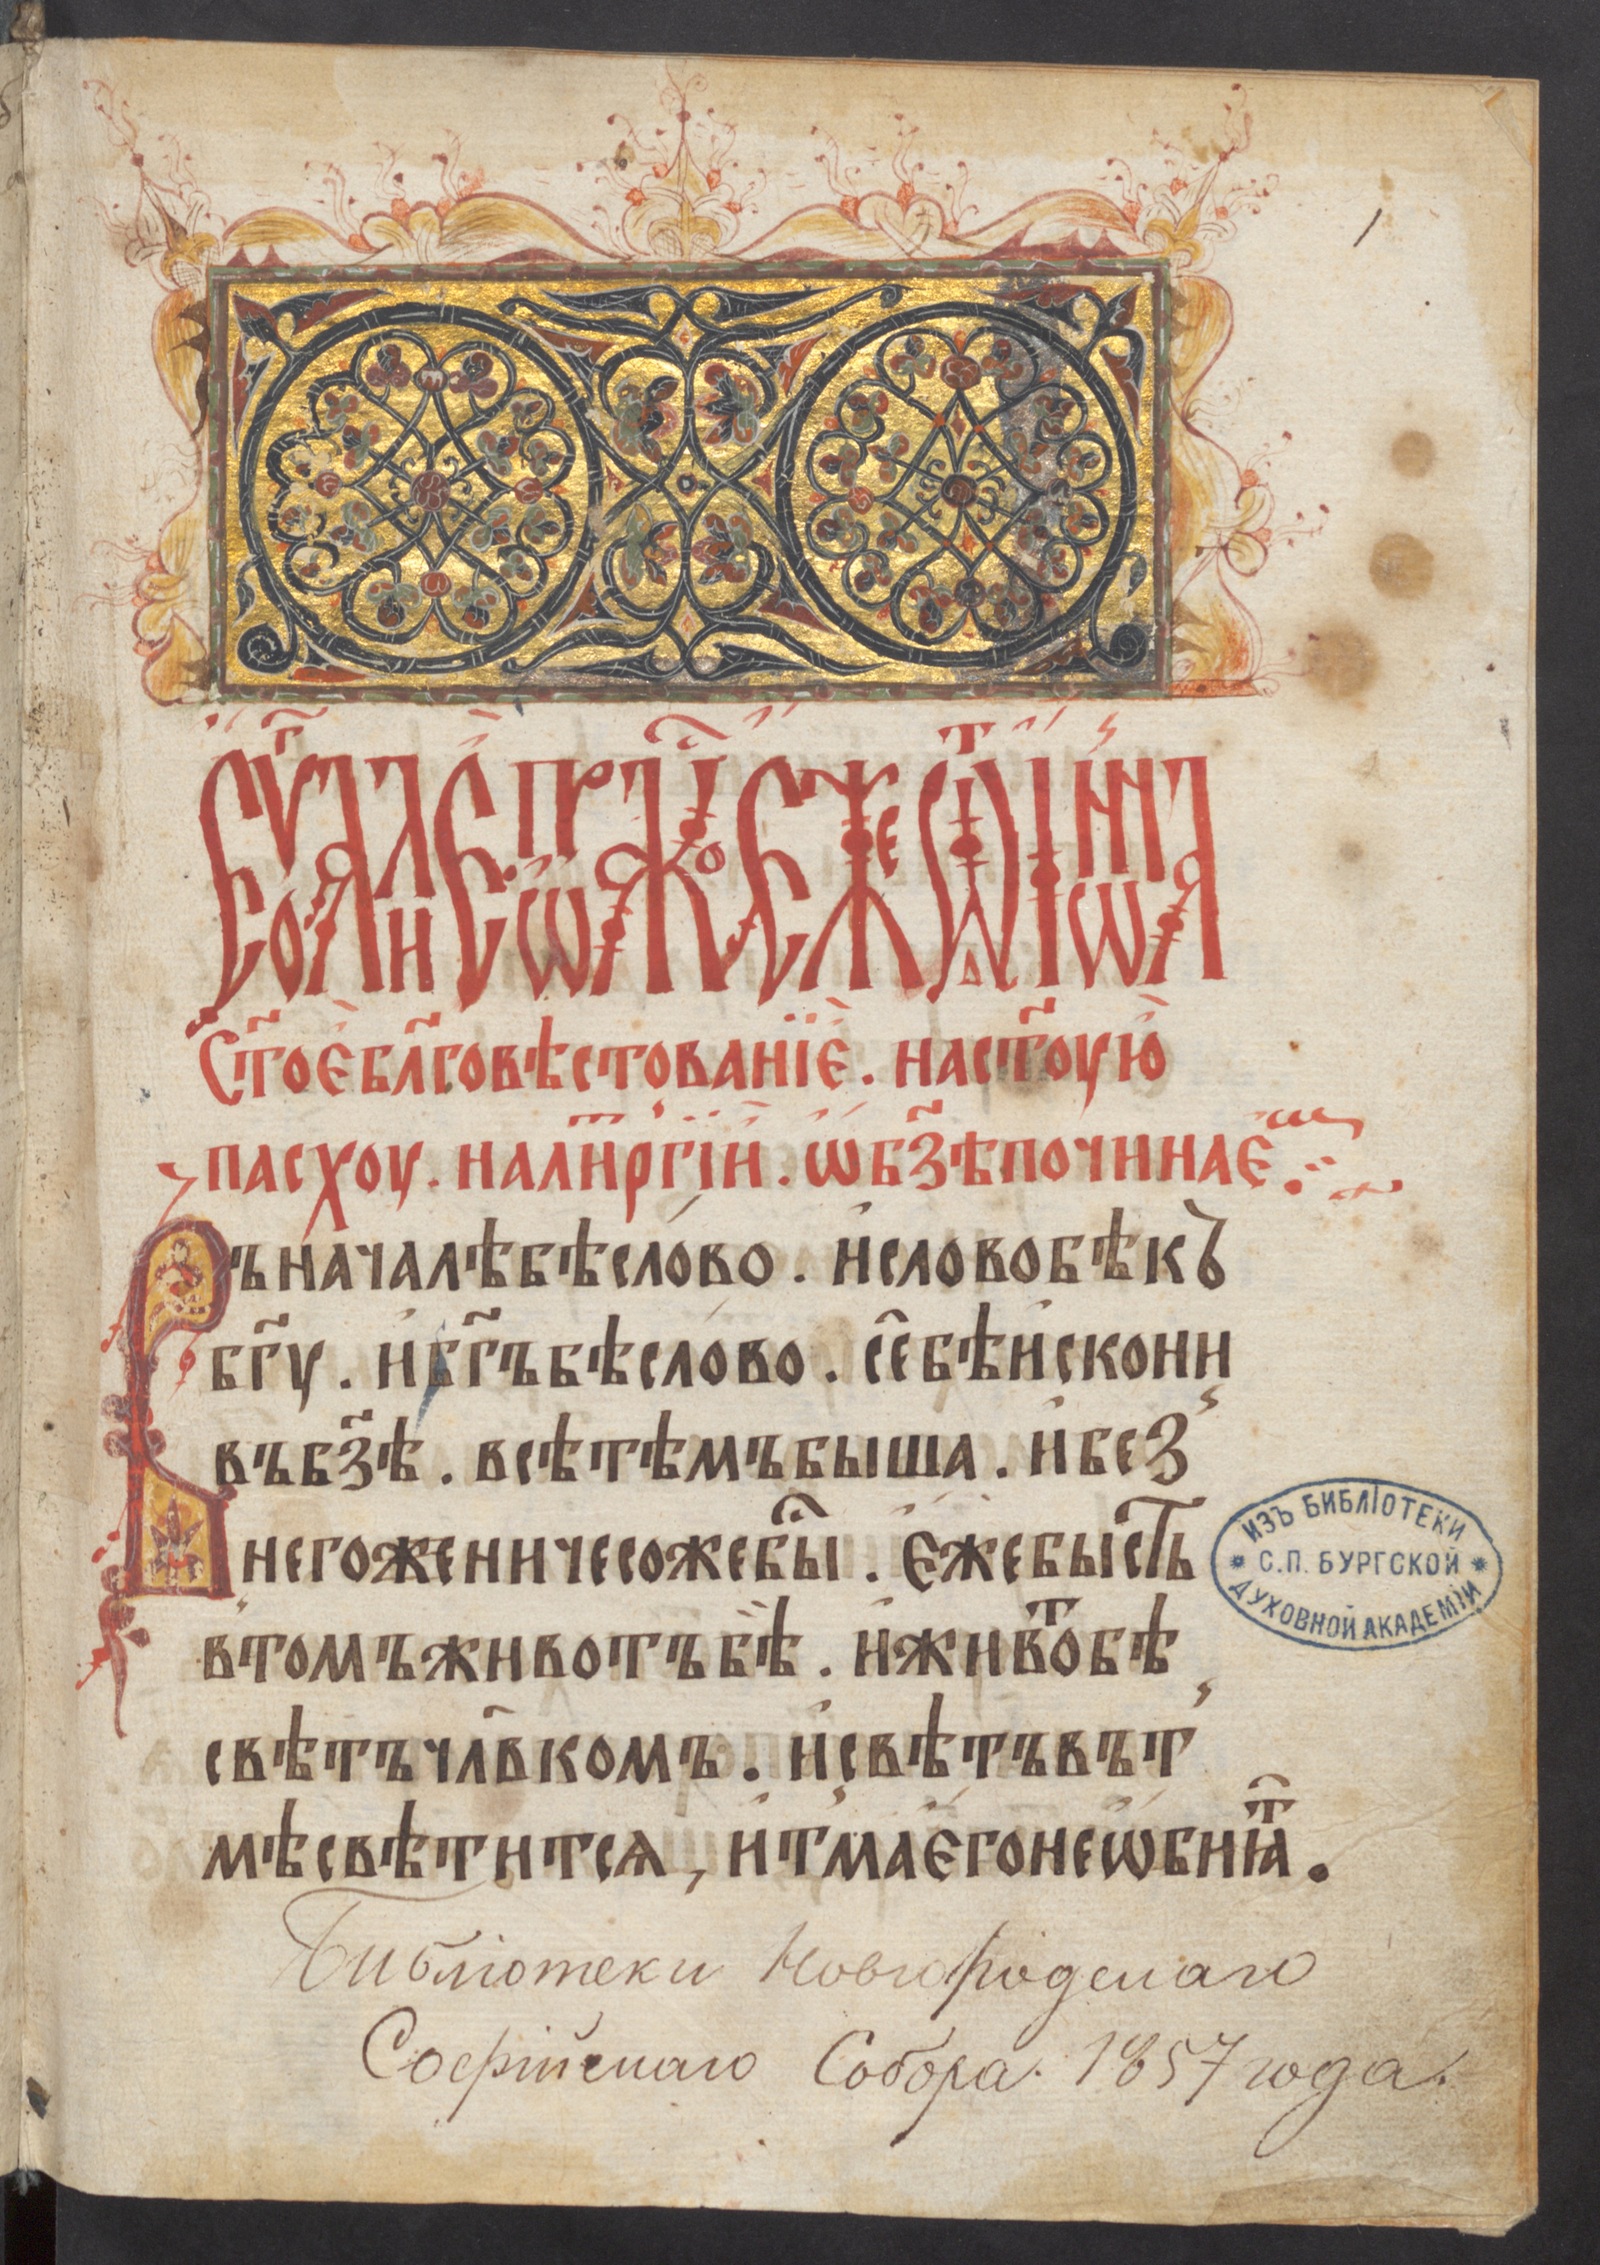 1
Стое бл҃говѣстованїе . настоую
пасхоу . налиргїи . ѡбз҃ѣпочинаеш
Въначалѣбѣслово . исловобѣкъ
бг҃у . ибг҃ъбѣслово . сеⷤбѣискони
въбз҃ѣ . всѣтѣмъбыша . ибез
негоженичесожебыⷭ . ежебысть
втомъживотъбѣ . иживѿбѣ
свѣтъчл҃вкомъ . исвѣтъвът
мѣсвѣтится , итмаегонеѡбиꙗⷮ .
ИЗЪ БИБЛІОТЕКИ
С.П. БУРГСКОЙ
ДУХОВНОЙ АКАДЕМІИ
Библіотеки Новгородскаго
Софійскаго Собора. 1857 года.